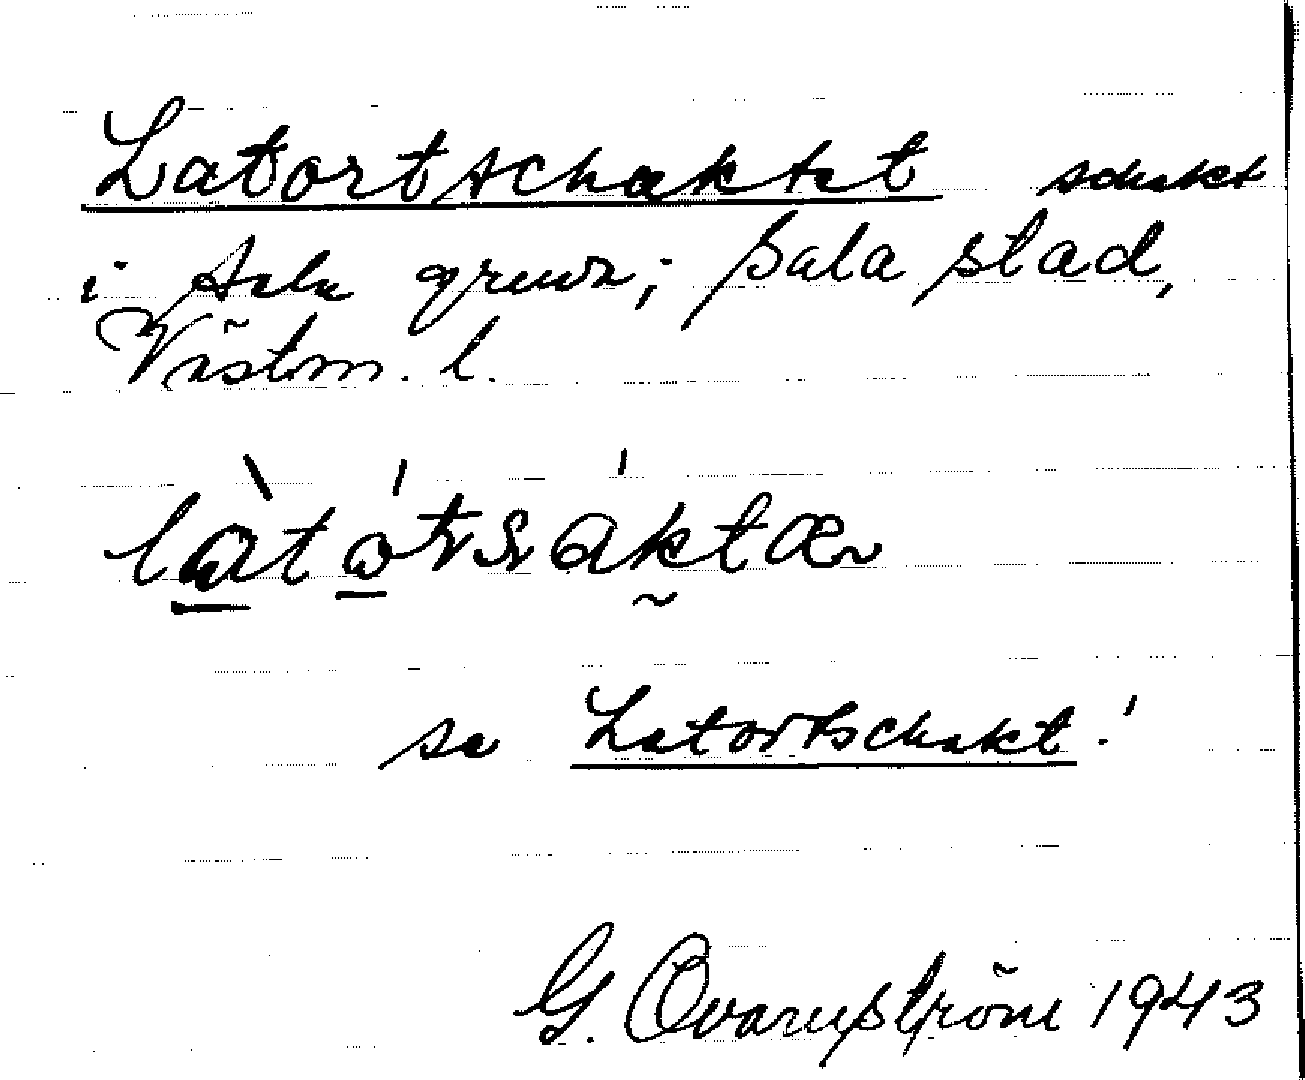 Latortschaktet schakt
i Sala gruva; Sala stad,
Västm. l.
se Latortschakt!
G. Qvarnström 1943